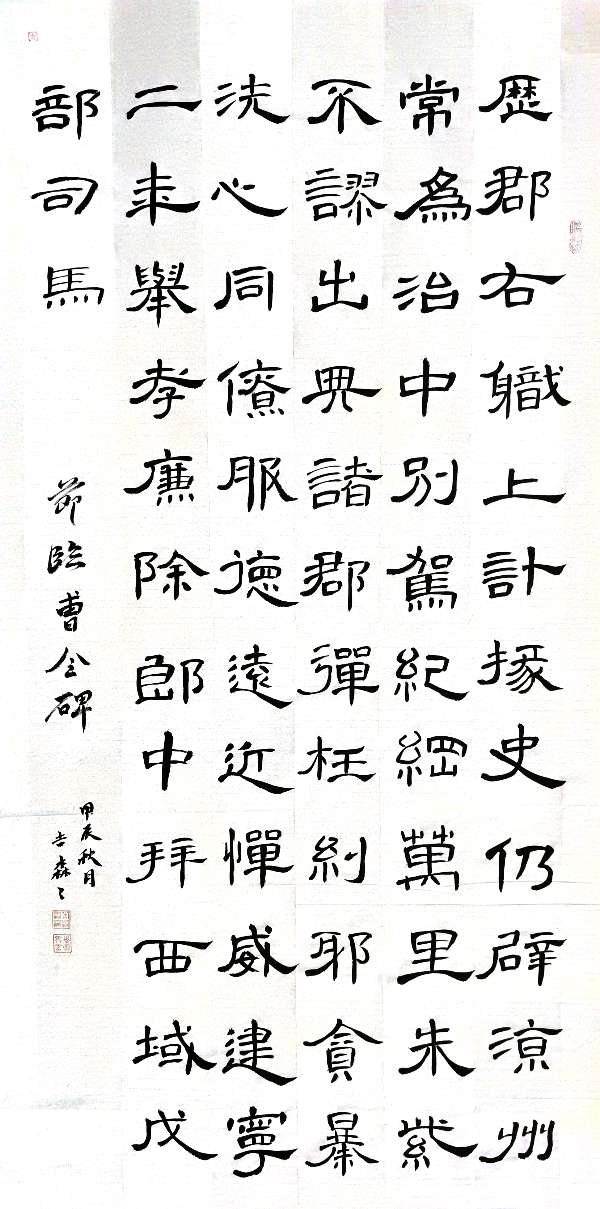 歷郡右職上計掾史仍辟涼州
常為治中別駕紀綱萬里朱紫
不謬出典諸郡彈枉糾邪貪暴
洗心同僚服德遠近憚威建寧
二年舉孝廉除郎中拜西域戊
部司馬
節臨曹全碑
甲辰秋月